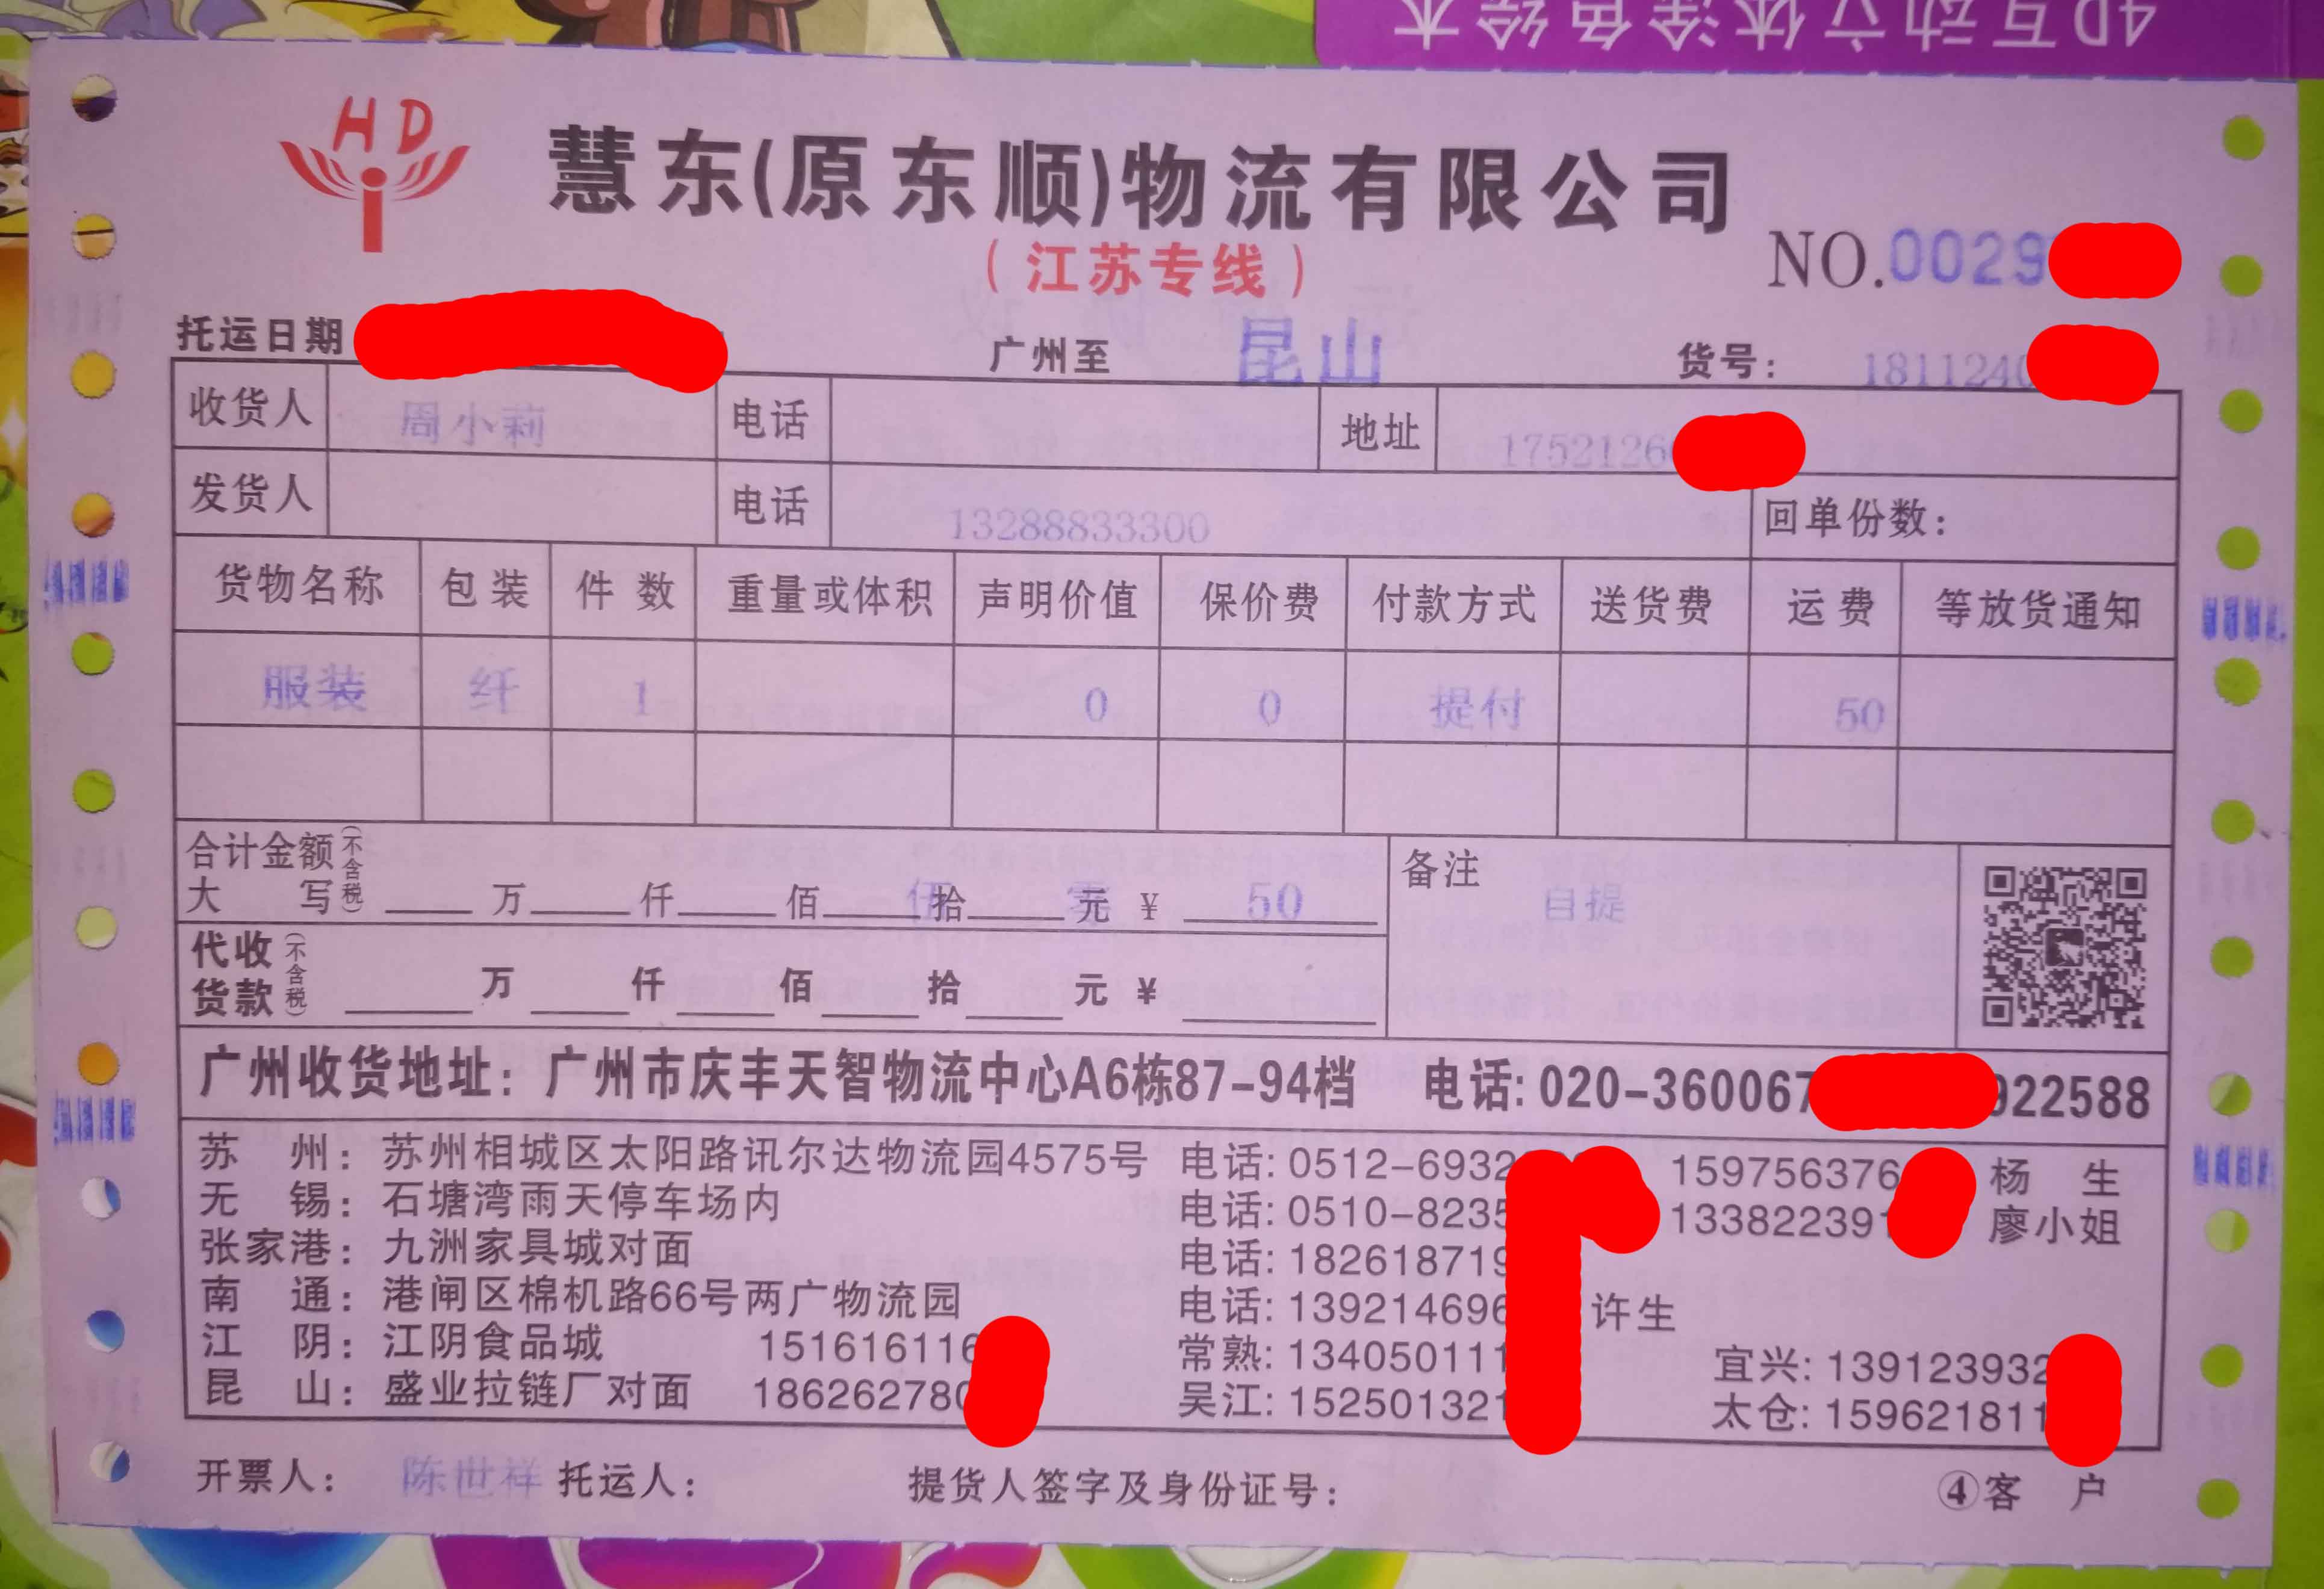 4D互动立体涂色绘本
HD
慧东(原东顺)物流有限公司
(江苏专线)
NO.0029
托运日期 广州至 昆山 货号: 1811240
收货人 周小莉 电话 地址 1752126
发货人 电话 13288833300 回单份数:
货物名称 包装 件数 重量或体积 声明价值 保价费 付款方式 送货费 运费 等放货通知
服装 纤 1 0 0 提付 50
合计金额(不含税) 备注
大写 万 仟 佰 伍拾 零元 ¥ 50 自提
代收货款(不含税) 万 仟 佰 拾 元 ¥
广州收货地址: 广州市庆丰天智物流中心A6栋87-94档 电话: 020-360067 922588
苏州: 苏州相城区太阳路讯尔达物流园4575号 电话: 0512-6932 159756376 杨生
无锡: 石塘湾雨天停车场内 电话: 0510-8235 133822391 廖小姐
张家港: 九洲家具城对面 电话: 182618719
南通: 港闸区棉机路66号两广物流园 电话: 139214696 许生
江阴: 江阴食品城 151616116 常熟: 134050111 宜兴: 139123932
昆山: 盛业拉链厂对面 186262780 吴江: 152501321 太仓: 159621811
开票人: 陈世祥 托运人: 提货人签字及身份证号: ④客户